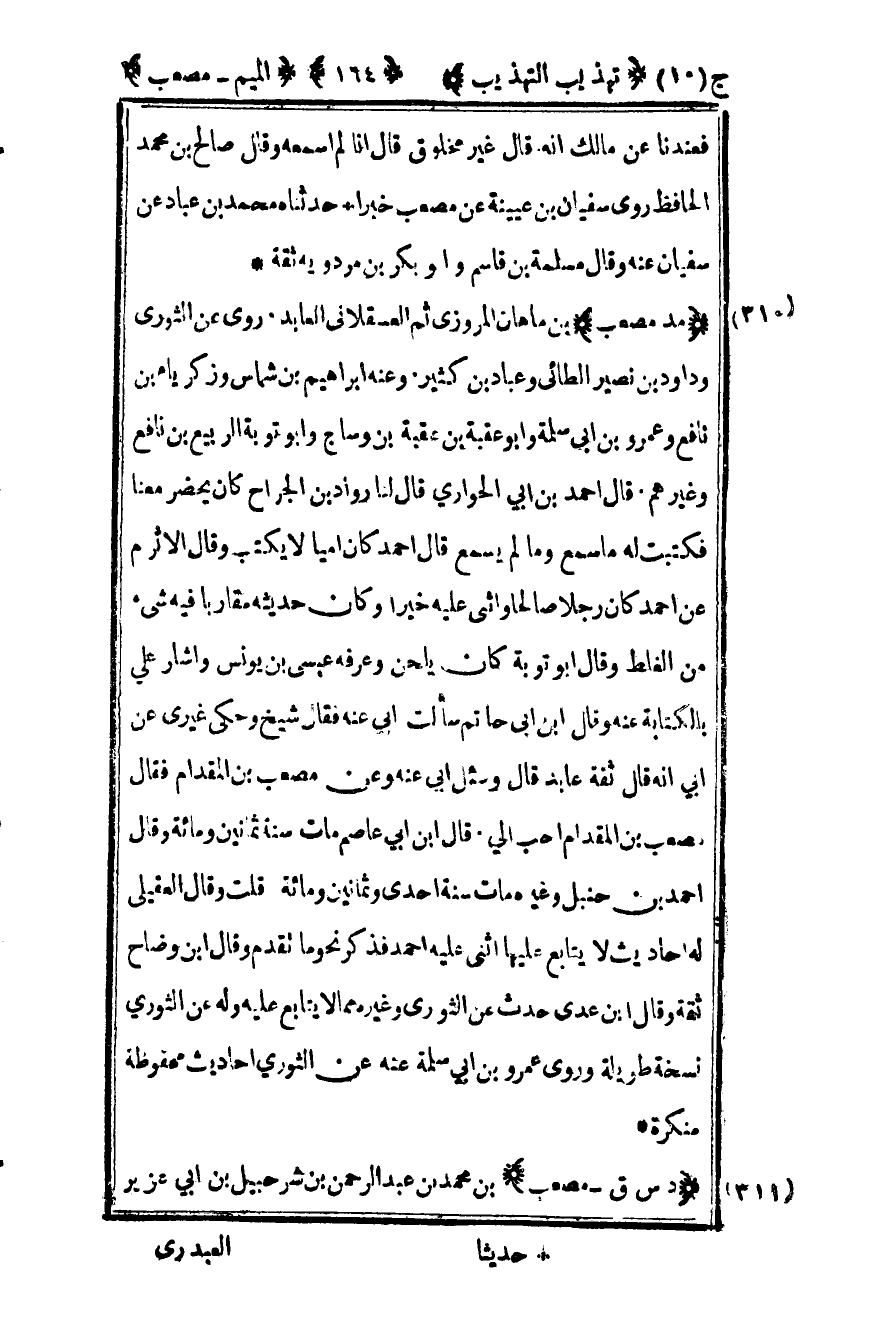 ج (١٠) ﴿ تهذيب التهذيب ﴾ ﴿ ١٦٤ ﴾ ﴿ الميم - مصعب ﴾
فعندنا عن مالك انه قال غير مخلوق قال انا لم اسمعه وقال صالح بن محمد
الحافظ روى سفيان بن عيينة عن مصعب خبرا* حدثناه محمد بن عباد عن
سفيان عنه وقال مسلمة بن قاسم و ا و بكر بن مردويه ثقة *
(٣١٠) ﴿ مد مصعب ﴾ بن ماهان المروزى ثم العسقلانى العابد · روى عن الثورى
وداود بن نصير الطائى وعباد بن كثير · وعنه ابراهيم بن شماس وزكرياء بن
نافع وعمرو بن ابي سلمة وابو عقبة بن عقبة بن وساج وابو توبة الربيع بن نافع
وغيرهم · قال احمد بن ابي الحواري قال لنا رواد بن الجراح كان يحضر معنا
فكتبت له ماسمع وما لم يسمع قال احمد كان اميا لا يكتب وقال الاثرم
عن احمد كان رجلا صالحا واثنى عليه خيرا وكان حديثه مقاربا فيه شىء
من الغلط وقال ابو توبة كان يلحن وعرفه عيسى بن يونس واشار علي
بالكتابة عنه وقال ابن ابى حاتم سألت ابي عنه فقال شيخ وحكى غيرى عن
ابي انه قال ثقة عابد قال وسئل ابى عنه وعن مصعب بن المقدام فقال
مصعب بن المقدام احب الي · قال ابن ابي عاصم مات سنة ثمانين ومائة وقال
احمد بن حنبل وغيره مات سنة احدى وثمانين ومائة قلت وقال العقيلى
له احاديث لا يتابع عليها اثنى عليه احمد فذكر نحو ما تقدم وقال ابن وضاح
ثقة وقال ابن عدى حدث عن الثورى وغيره مما لا يتابع عليه وله عن الثوري
نسخة طويلة وروى عمرو بن ابي سلمة عنه عن الثوري احاديث محفوظة
منكرة *
(٣١١) ﴿ د س ق - مصعب ﴾ بن محمد بن عبد الرحمن بن شرحبيل بن ابي عزير
* حديثا
العبدرى